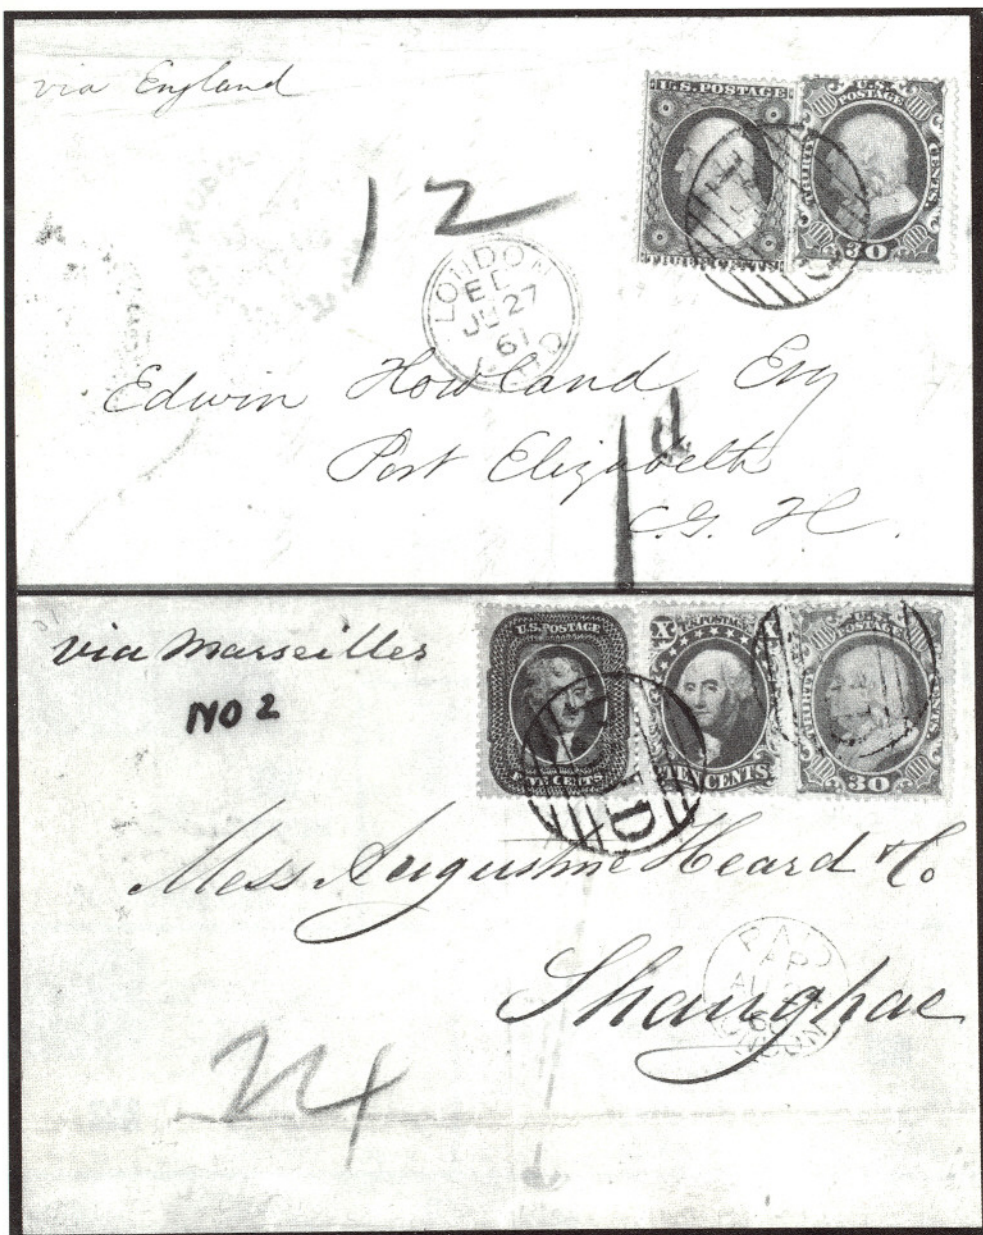 via England
U.S. POSTAGE
THREE CENTS
U.S.
POSTAGE
THIRTY
CENTS.
30
12
LONDON
JU 27
61
Edwin Howland Esq
Port Elizabeth
C. G. H.
1d
via Marseilles
NO 2
U.S. POSTAGE
FIVE CENTS
X
U.S. POSTAGE
X
TEN CENTS
U.S.
POSTAGE
THIRTY
CENTS.
30
Mess Augustine Heard & Co
Shanghae
PAID
LONDON
24